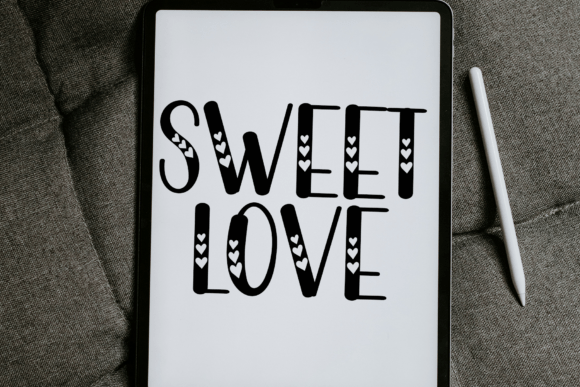 SWEET
LOVE